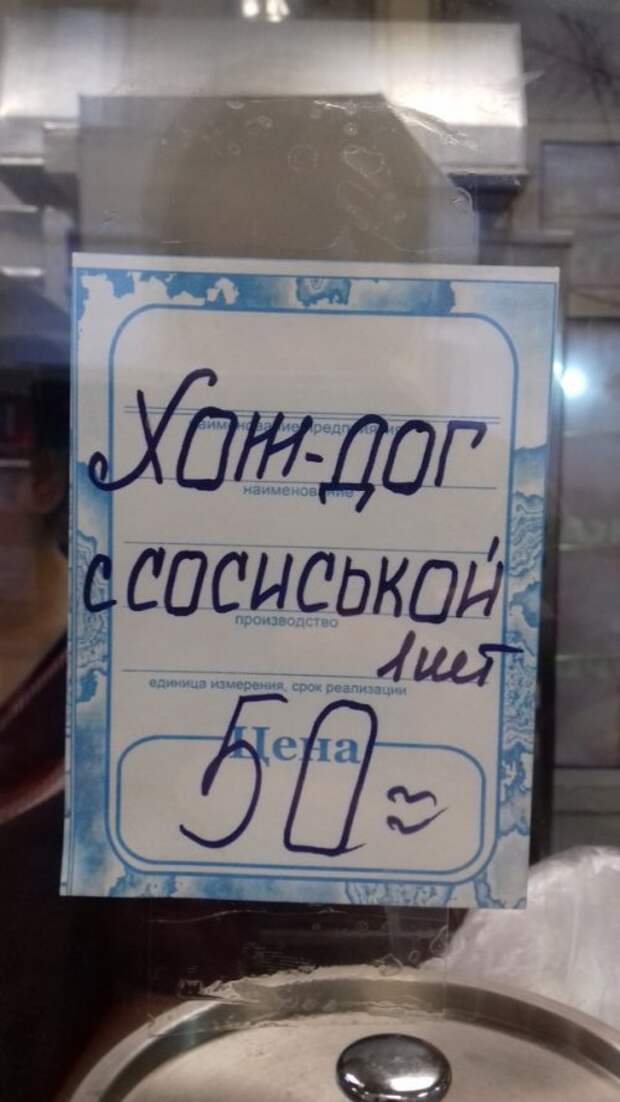 наименование предприятия
Хот-дог
наименование
с сосиськой
производство
1 шт
единица измерения, срок реализации
Цена
50=